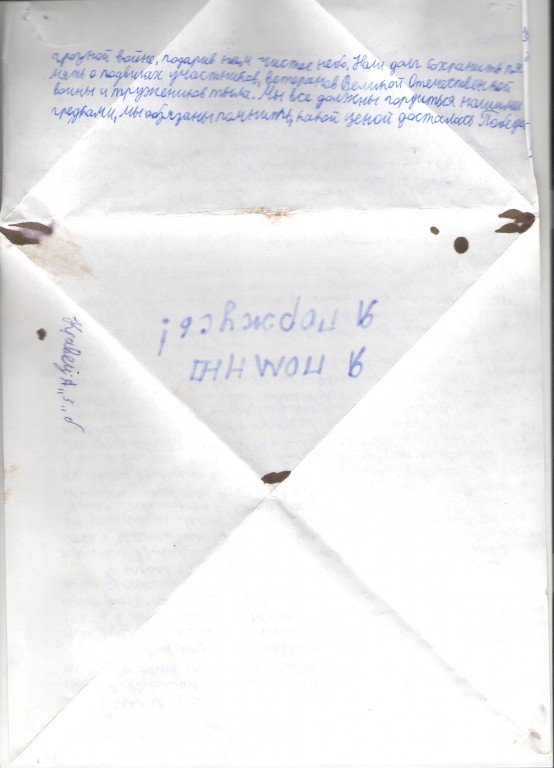 грозной войне, подарив нам чистое небо. Наш долг сохранить па-
мять о подвигах участников, ветеранов Великой Отечественной
войны и тружеников тыла. Мы все должны гордиться нашими
предками, мы обязаны помнить, какой ценой досталась Победа.
Я помню
Я горжусь!